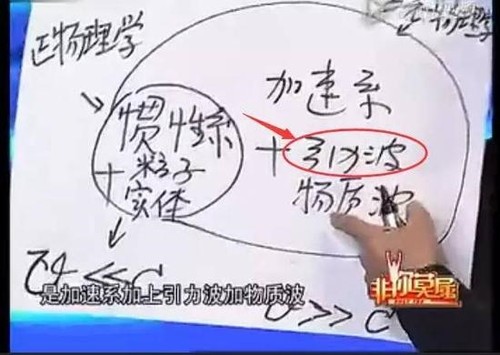 正物理学
加速系
惯性系
+引力波
+粒子
物质波
实体
是加速系加上引力波加物质波
非你莫属
>> C